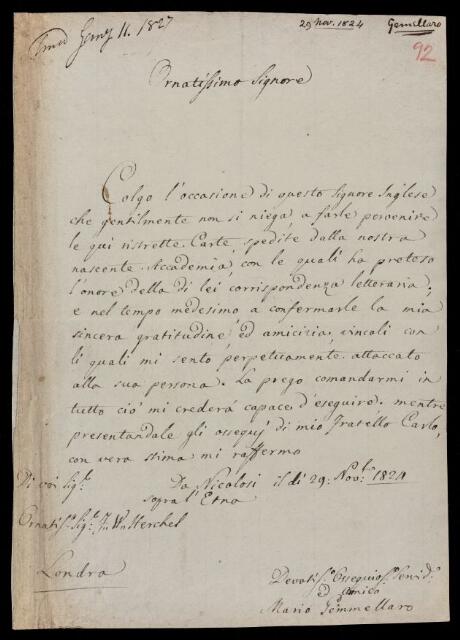 Jany 11. 1827
29 Nov. 1824
Gemillaro
92
Ornatissimo Signore
Colgo l'occasione di questo Signore Inglese
che gentilmente non si niega, a farle pervenire
le qui ristrette Carte, spedite dalla nostra
nascente Accademia, con le quali ha preteso
l'onore della di lei corrispondenza letteraria;
e nel tempo medesimo a confermarle la mia
sincera gratitudine, ed amicizia, vincoli con
li quali mi sento perpetuamente attaccato
alla sua persona. La prego comandarmi in
tutto ciò mi crederá capace d'eseguire, mentre
presentandole gli ossequj di mio Fratello Carlo,
con vera stima mi raffermo
Da Nicolosi il dì 29: Nov.e 1824
sopra l'Etna
Di voi Sig.e
Ornatis.o Sig.e J. W. Herchel
Londra
Devotis.o Ossequios.o Servid.e
ed amico
Mario Gemmellaro